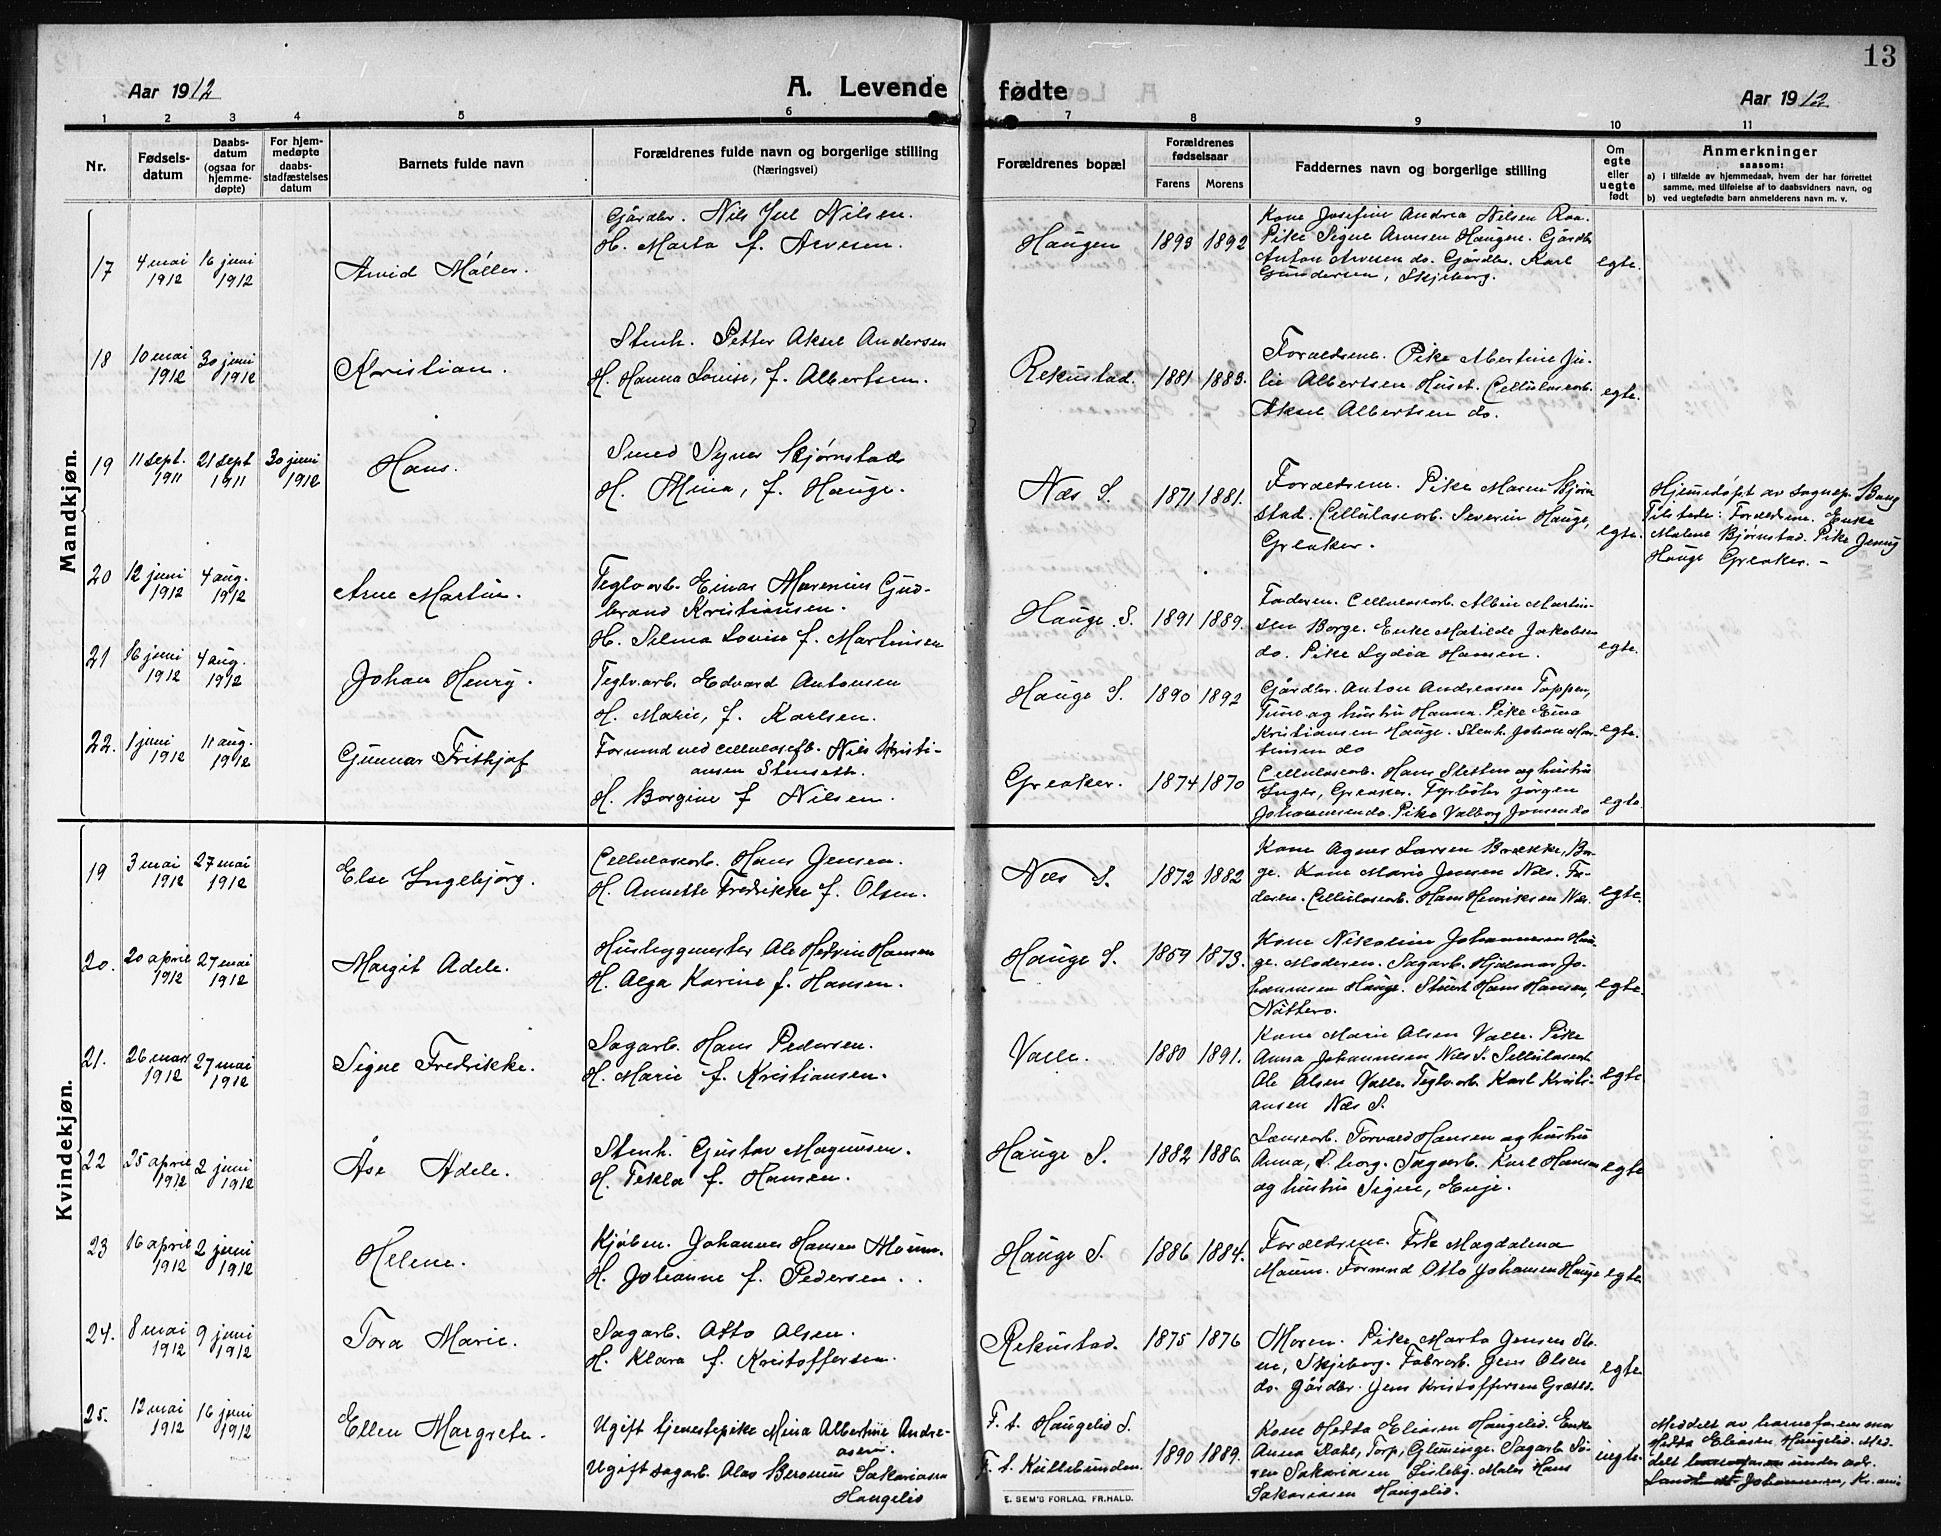 13
Aar 1912
A. Levende fødte
Aar 1912
1 2 3 4 5 6 7 8 9 10 11
Nr.
Fødsels-
datum
Daabs-
datum
(ogsaa for
hjemme-
døpte)
For hjem-
medøpte
daabs-
stadfæstelses
datum
Barnets fulde navn
Forældrenes fulde navn og borgerlige stilling
(Næringsvei)
Forældrenes bopæl
Forældrenes
fødselsaar
Farens Morens
Faddernes navn og borgerlige stilling
Om
egte
eller
uegte
født
Anmerkninger
saasom:
a) i tilfælde av hjemmedaab, hvem der har forrettet
samme, med tilføielse af to daabsvidners navn, og
b) ved uegtefødte barn anmelderens navn m. v.
Mandkjøn.
17 4 mai 1912 16 juni 1912
Arvid Møller.
Gårdbr. Nils Jul Nilsen.
H. Marta f. Arvesen.
Haugen 1893 1892
Kone Josefine Andrea Nilsen Raa.
Pike Signe Arvesen Haugen. Gårdbr
Anton Arvesen do. Gårdbr. Karl
Gundersen, Skjeberg.
egte.
18 10 mai 1912 30 juni 1912
Kristian.
Stenh. Petter Aksel Andersen
H. Hanna Louise, f. Albertsen.
Rekustad. 1881 1883.
Forældrene. Pike Albertine Ju-
lie Albertsen Huset. Cellulosearb.
Aksel Albertsen do.
egte.
19 11 sept. 1911 21 sept 1911 30 juni 1912
Hans.
Smed Bjørnstad
H. Mina, f. Hauge.
Næs S. 1871 1881.
Forældrene. Pike Maren Bjørn
stad. Cellulosearb. Severin Hauge,
Greaker.
egte.
Hjemedøpt av sognep. Bang
Tilstede: Forældrene. Enke
Malene Bjørnstad. Pike Jenny
Hauge Greaker. -
20 12 juni 1912 4 aug. 1912
Arne Martin.
Teglvarb. Einar Marenius Gud-
brand Kristiansen.
H. Selma Lovise f. Martinsen
Hauge. S. 1891 1889.
Faderen. Cellulosearb. Albin Martin-
sen Borge. Enke Matilde Jakobsen
do. Pike Lydia Hansen.
egte.
21 16 juni 1912 4 aug. 1912
Johan Henry.
Teglvarb. Edvard Antonsen
H. Marie, f. Karlsen.
Hauge S. 1890 1892
Gårdbr. Anton Andreasen Toppen,
Tune og hustru Hanna. Pike Eina
Kristiansen Hauge. Stenh. Johan Mar-
tinsen do
egte.
22. 1 juni 1912 11 aug. 1912
Gunnar Frithjof
Formand ved cellulosefb. Nils Kristi-
ansen Stenseth.
H. Borgine f Nilsen.
Greaker. 1874 1870
Cellulosearb. Hans Sletten og hustru
Inger, Greaker. Fyrbøter Jørgen
Johannesen do. Pike Valborg Jonsen do
egte.
Kvindekjøn.
19 3 mai 1912 27 mai 1912
Else Ingebjørg.
Cellulosearb. Hans Jensen.
H. Annette Fredrikke f. Olsen.
Næs S. 1872 1882
Kone Agnes Larsen Brække, Bor-
ge. Kone Marie Jensen Næs. Fa-
deren. Cellulosearb. Hans Henriksen Næs.
egte.
20. 20 april 1912 27 mai 1912
Margit Adele.
Husbygmester Ole Hansen
H. Olga Karine f. Hansen.
Hauge S. 1859 1873.
Kone Nikoline Johannesen Hau-
ge. Moderen. Sagarb. Hjalmar Jo-
hannesen Hauge. Hans Hansen,
Nøtterø.
egte.
21. 26 mars 1912 27 mai 1912
Signe Fredrikke.
Sagarb. Hans Pedersen.
H. Marie f. Kristiansen.
Valle. 1880 1891.
Kone Marie Olsen Valle. Pike
Anna Johannesen Næs S. Cellulosearb
Ole Olsen Valle. Teglvarb. Karl Kristi-
ansen Næs S.
egte
22 25 april 1912 2 juni 1912
Åse Adele.
Stenh. Gustav Magnusen.
H. Tekla f. Hansen.
Hauge S. 1882 1886.
Lænsearb. Torvald Hansen og hustru
Anna, S.borg. Sagarb. Karl Hansen
og hustru Signe, Enje.
egte
23 16 april 1912 2 juni 1912
Helene.
Kjøbm. Johannes Hansen Moum.
H. Johanne f. Pedersen.
Hauge S. 1886 1884.
Forældrene. Frk Magdalena
Moum. Formnd Otto Johansen Hauge
egte.
24. 8 mai 1912 9 juni 1912
Tora Marie.
Sagarb. Otto Olsen.
H. Klara f. Kristoffersen.
Rekustad. 1875 1876
Moren. Pike Marta Jensen Ste-
ne, Skjeberg. Fabrarb. Jens Olsen
do. Gårdbr. Jens Kristoffersen
egte.
25. 12 mai 1912 16 juni 1912
Ellen Margrete.
Ugift tjenestepike Mina Albertine Andre-
asen.
Ugift sagarb. Olas Beronius Sakariasen
Haugelid
F. t. Haugelid S.
F. t. Kullebunden.
1890 1889.
Kone Hedda Eliasen Haugelid. Enke
Anna Torp, Glemminge. Sagarb. Sø-
ren Sakariasen Lisleby. Maler Hans
Sakariasen Haugelid.
uegte.
Meddelt av barnefaren mor
Hedda Eliasen Haugelid. Med-
delt under adr.
Johannesen, Kr.ania
E. SEM'S FORLAG, FR.HALD.